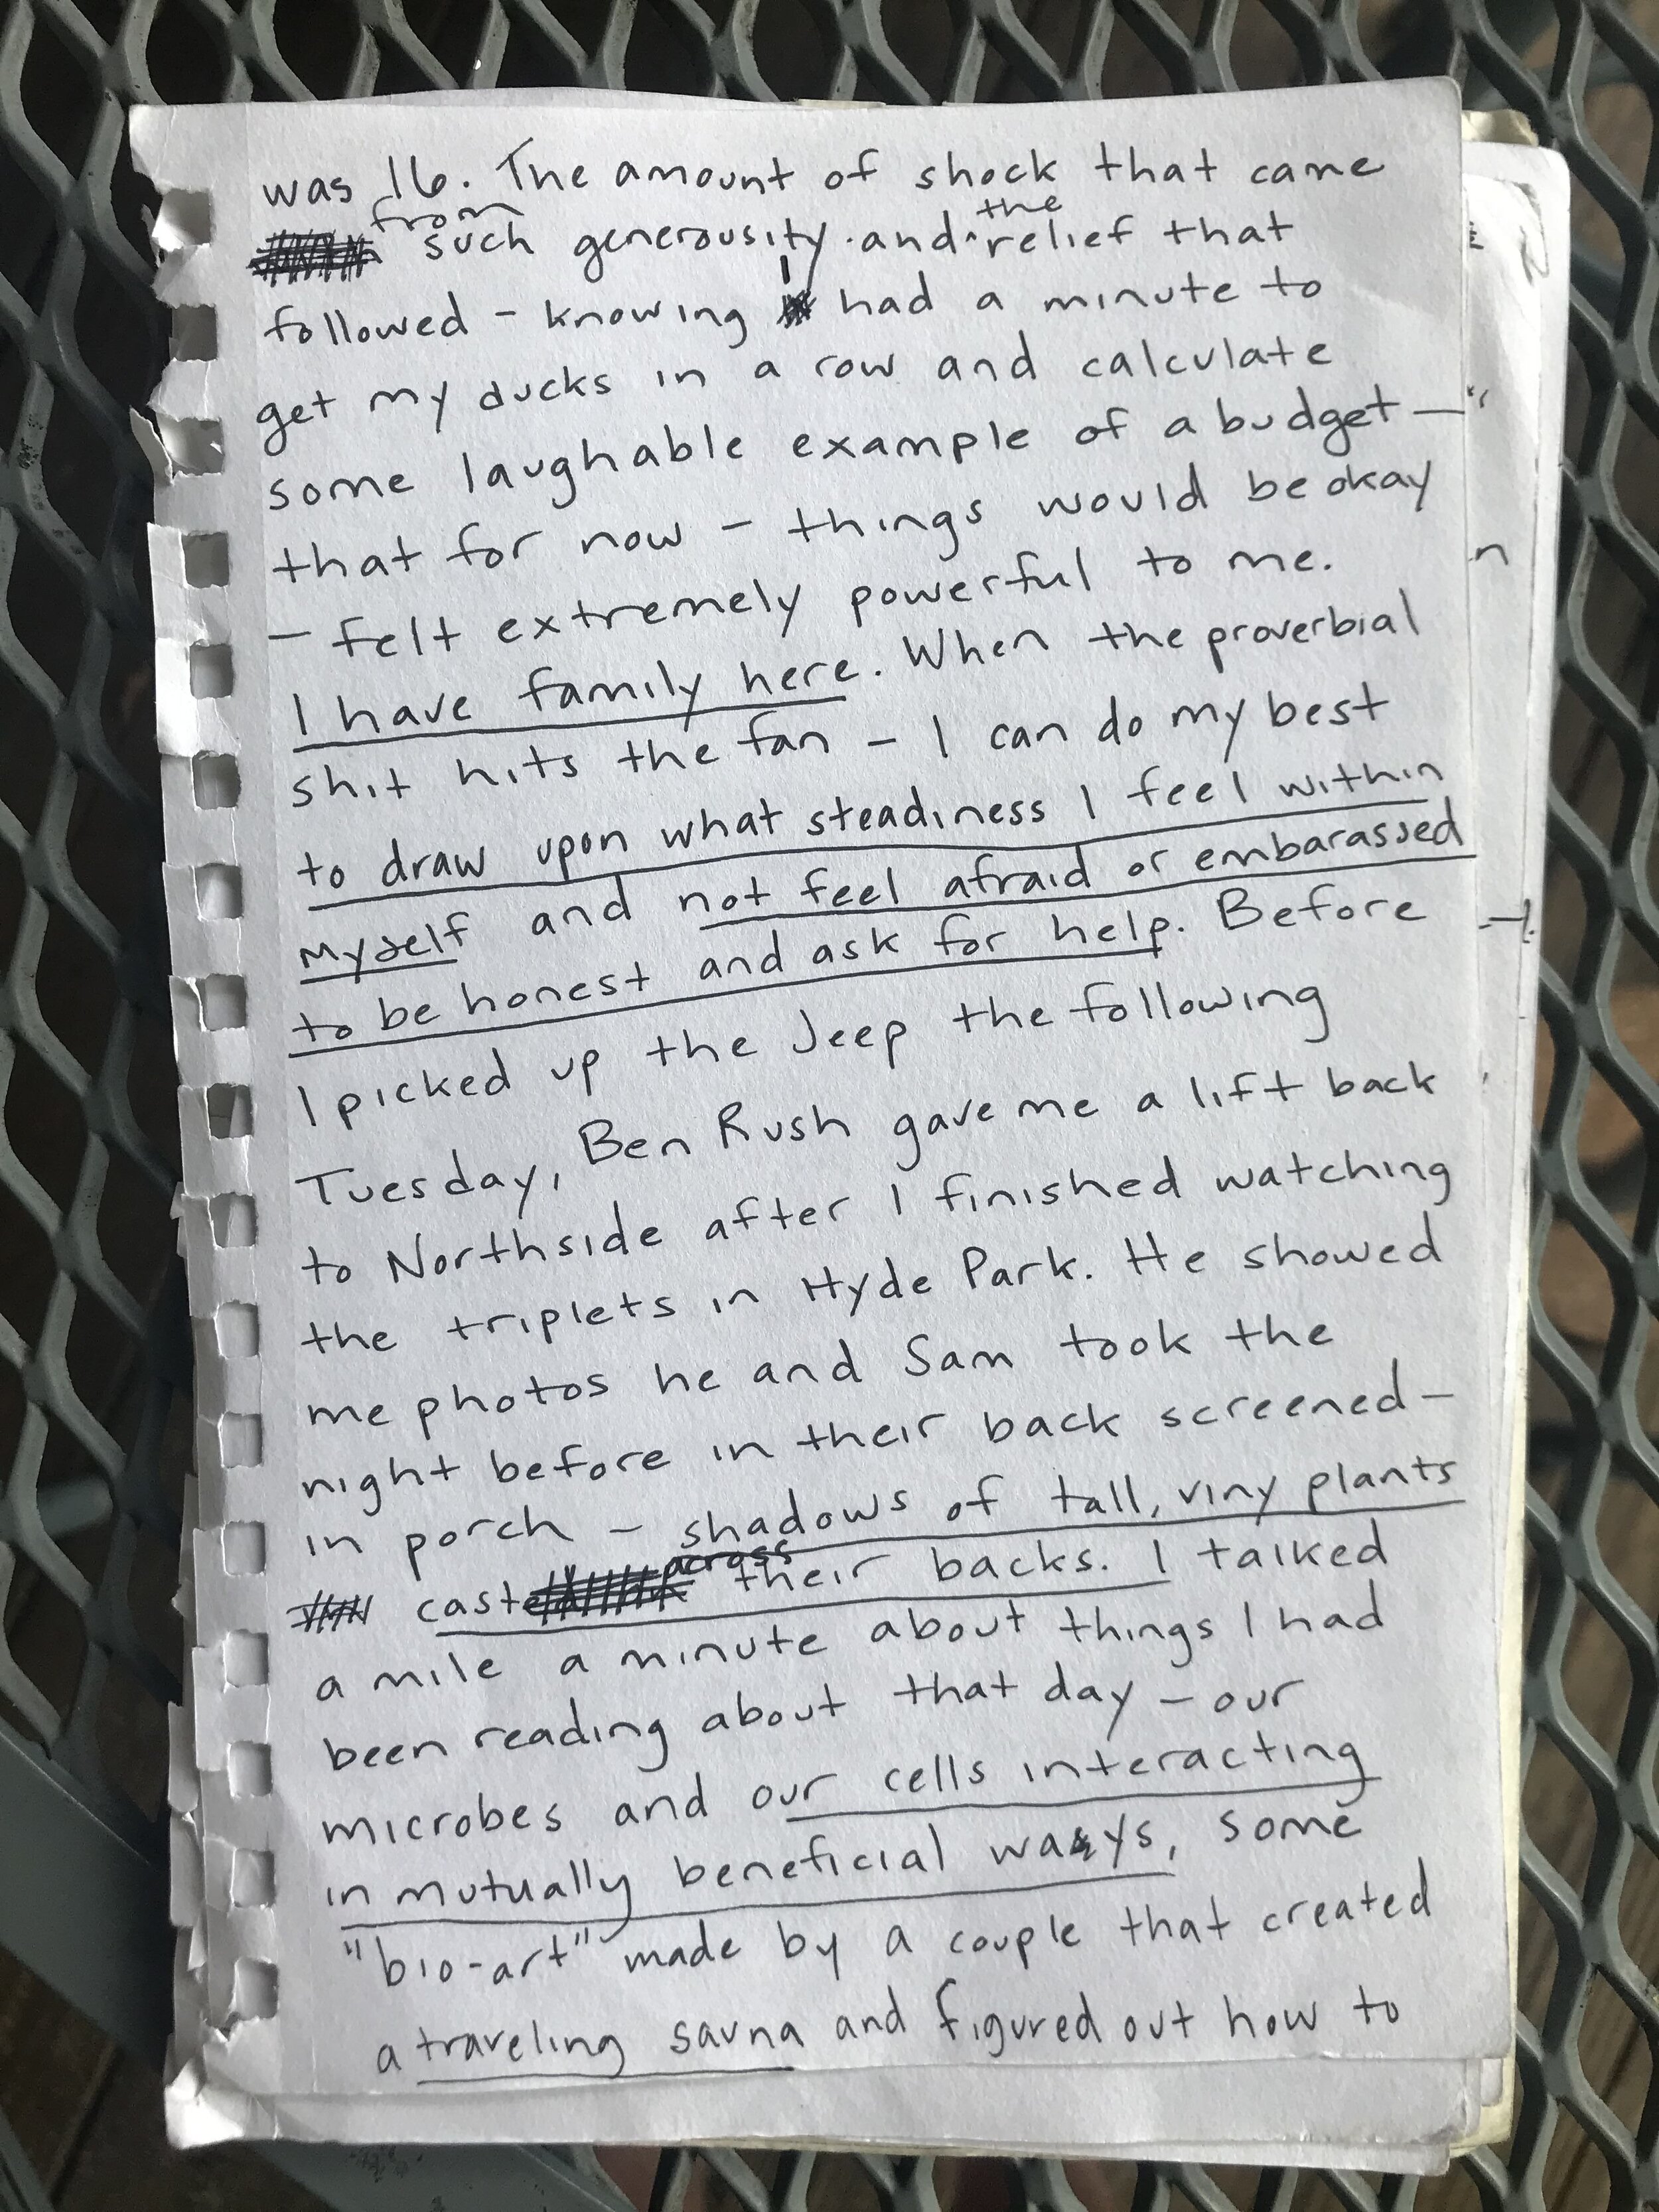 was 16. The amount of shock that came
from such generousity and the relief that
followed - knowing I had a minute to
get my ducks in a row and calculate
some laughable example of a budget —
that for now - things would be okay
— felt extremely powerful to me.
I have family here. When the proverbial
shit hits the fan - I can do my best
to draw upon what steadiness I feel within
myself and not feel afraid or embarassed
to be honest and ask for help. Before
I picked up the Jeep the following
Tuesday, Ben Rush gave me a lift back
to Northside after I finished watching
the triplets in Hyde Park. He showed
me photos he and Sam took the
night before in their back screened-
in porch - shadows of tall, viny plants
cast across their backs. I talked
a mile a minute about things I had
been reading about that day - our
microbes and our cells interacting
in mutually beneficial ways, some
"bio-art" made by a couple that created
a traveling sauna and figured out how to